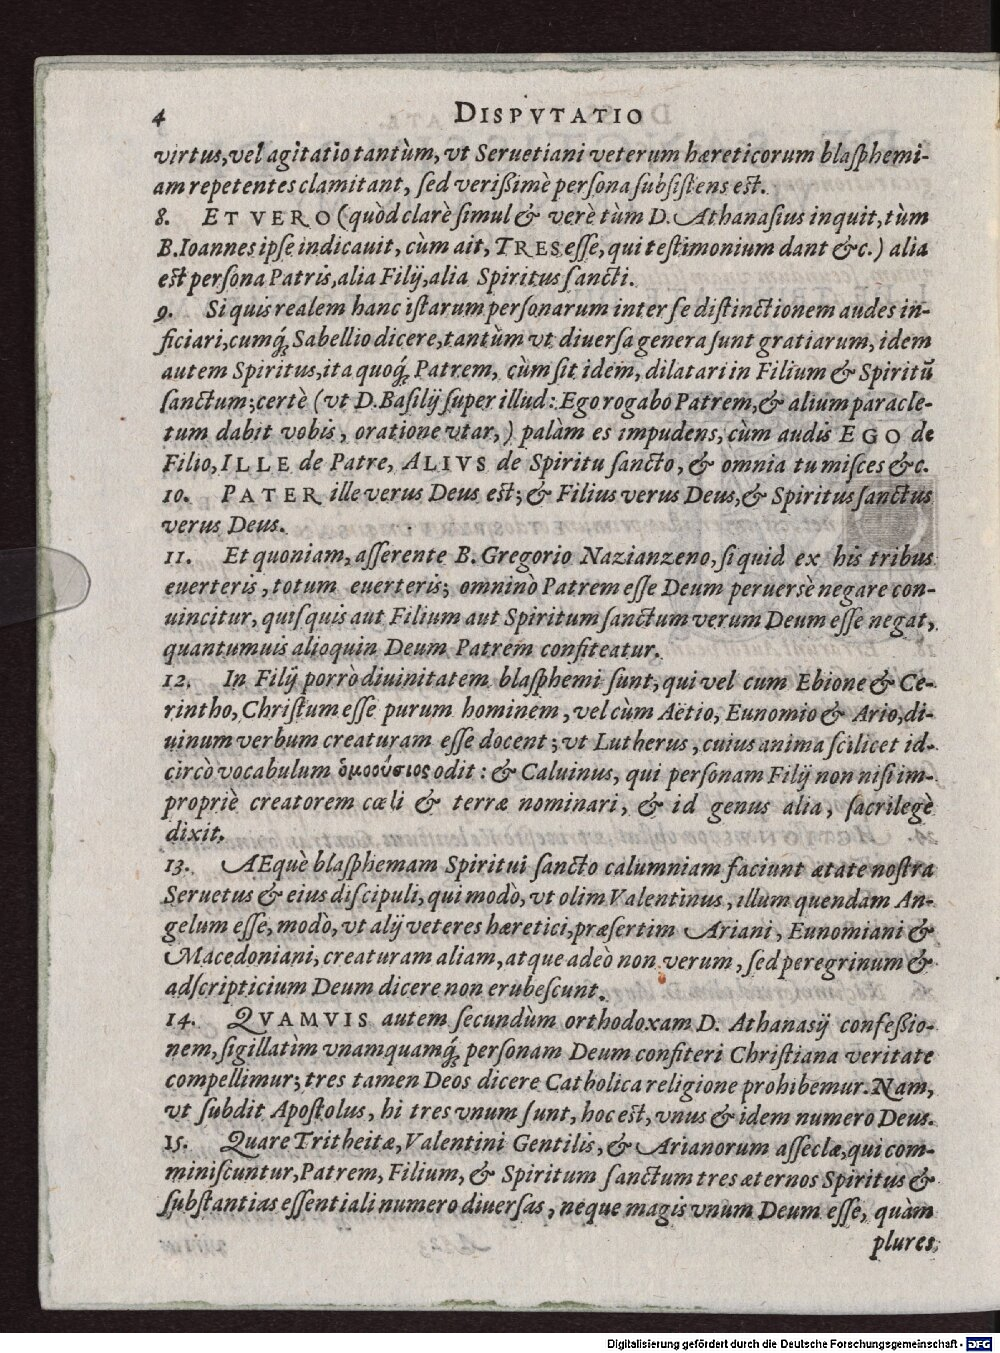 4 DISPVTATIO
virtus, vel agitatio tantùm, vt Seruetiani veterum hæreticorum blaſphemi-
am repetentes clamitant, ſed verißimè perſona ſubſiſtens eſt.
8. ET VERO (quòd clarè ſimul & verè tùm D. Athanaſius inquit, tùm
B. Ioannes ipſe indicauit, cùm ait, TRES eſſe, qui teſtimonium dant &c.) alia
eſt perſona Patris, alia Filij, alia Spiritus ſancti.
9. Si quis realem hanc iſtarum perſonarum inter ſe diſtinctionem audes in-
ficiari, cumq́; Sabellio dicere, tantùm vt diuerſa genera ſunt gratiarum, idem
autem Spiritus, ita quoq́; Patrem, cùm ſit idem, dilatari in Filium & Spiritũ
ſanctum; certè (vt D. Baſilij ſuper illud: Ego rogabo Patrem, & alium paracle-
tum dabit vobis, oratione vtar,) palàm es impudens, cùm audis EGO de
Filio, ILLE de Patre, ALIVS de Spiritu ſancto, & omnia tu miſces &c.
10. PATER ille verus Deus eſt; & Filius verus Deus, & Spiritus ſanctus
verus Deus.
11. Et quoniam, aſſerente B. Gregorio Nazianzeno, ſi quid ex his tribus
euerteris, totum euerteris; omninò Patrem eſſe Deum peruersè negare con-
uincitur, quiſquis aut Filium aut Spiritum ſanctum verum Deum eſſe negat,
quantumuis alioquin Deum Patrem confiteatur.
12. In Filij porrò diuinitatem blaſphemi ſunt, qui vel cum Ebione & Ce-
rintho, Chriſtum eſſe purum hominem, vel cùm Aëtio, Eunomio & Ario, di-
uinum verbum creaturam eſſe docent; vt Lutherus, cuius anima ſcilicet id-
circò vocabulum ὁμοούσιος odit: & Caluinus, qui perſonam Filij non niſi im-
propriè creatorem cœli & terræ nominari, & id genus alia, ſacrilegè
dixit.
13. AEquè blaſphemam Spiritui ſancto calumniam faciunt ætate noſtra
Seruetus & eius diſcipuli, qui modò, vt olim Valentinus, illum quendam An-
gelum eſſe, modò, vt alij veteres hæretici, præſertim Ariani, Eunomiani &
Macedoniani, creaturam aliam, atque adeò non verum, ſed peregrinum &
adſcripticium Deum dicere non erubeſcunt.
14. QVAMVIS autem ſecundùm orthodoxam D. Athanaſij confeßio-
nem, ſigillatìm vnamquamq́; perſonam Deum confiteri Chriſtiana veritate
compellimur; tres tamen Deos dicere Catholica religione prohibemur. Nam,
vt ſubdit Apoſtolus, hi tres vnum ſunt, hoc eſt, vnus & idem numero Deus.
15. Quare Tritheitæ, Valentini Gentilis, & Arianorum aſſeclæ, qui com-
miniſcuntur, Patrem, Filium, & Spiritum ſanctum tres æternos Spiritus &
ſubſtantias eſſentiali numero diuerſas, neque magis vnum Deum eſſe, quàm
plures,
Digitalisierung gefördert durch die Deutsche Forschungsgemeinschaft - DFG